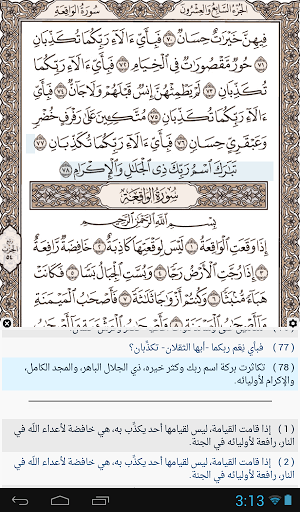 سُورَةُ الوَاقِعَةِ الجُزْءُ السَّابِعُ وَالعِشْرُونَ
فِيهِنَّ خَيْرَٰتٌ حِسَانٌ ٧٠ فَبِأَيِّ ءَالَآءِ رَبِّكُمَا تُكَذِّبَانِ
٧١ حُورٌ مَّقْصُورَٰتٌ فِي ٱلْخِيَامِ ٧٢ فَبِأَيِّ ءَالَآءِ رَبِّكُمَا
تُكَذِّبَانِ ٧٣ لَمْ يَطْمِثْهُنَّ إِنسٌ قَبْلَهُمْ وَلَا جَآنٌّ ٧٤
فَبِأَيِّ ءَالَآءِ رَبِّكُمَا تُكَذِّبَانِ ٧٥ مُتَّكِـِٔينَ عَلَىٰ رَفْرَفٍ خُضْرٍ
وَعَبْقَرِيٍّ حِسَانٍ ٧٦ فَبِأَيِّ ءَالَآءِ رَبِّكُمَا تُكَذِّبَانِ ٧٧
تَبَٰرَكَ ٱسْمُ رَبِّكَ ذِي ٱلْجَلَٰلِ وَٱلْإِكْرَامِ ٧٨
سُورَةُ الوَاقِعَةِ
بِسْمِ ٱللَّهِ ٱلرَّحْمَٰنِ ٱلرَّحِيمِ
إِذَا وَقَعَتِ ٱلْوَاقِعَةُ ١ لَيْسَ لِوَقْعَتِهَا كَاذِبَةٌ ٢ خَافِضَةٌ رَّافِعَةٌ
٣ إِذَا رُجَّتِ ٱلْأَرْضُ رَجًّا ٤ وَبُسَّتِ ٱلْجِبَالُ بَسًّا ٥ فَكَانَتْ
هَبَآءً مُّنۢبَثًّا ٦ وَكُنتُمْ أَزْوَٰجًا ثَلَٰثَةً ٧ فَأَصْحَٰبُ ٱلْمَيْمَنَةِ
( 77 ) فبأي نِعَم ربكما -أيها الثقلان- تكذِّبان؟
( 78 ) تكاثرت بركة اسم ربك وكثر خيره، ذي الجلال الباهر، والمجد الكامل،
والإكرام لأوليائه.
( 1 ) إذا قامت القيامة، ليس لقيامها أحد يكذِّب به، هي خافضة لأعداء الله في
النار، رافعة لأوليائه في الجنة.
( 2 ) إذا قامت القيامة، ليس لقيامها أحد يكذِّب به، هي خافضة لأعداء الله في
النار، رافعة لأوليائه في الجنة.
3:13